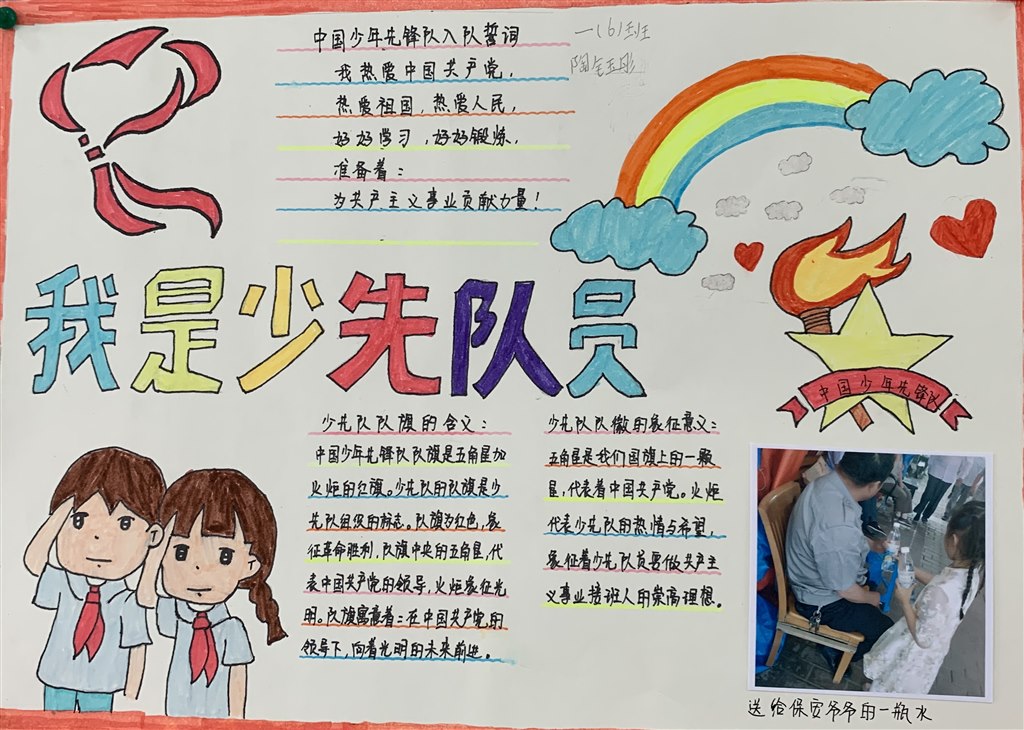 中国少年先锋队入队誓词
我热爱中国共产党，
热爱祖国，热爱人民，
好好学习，好好锻炼，
准备着：
为共产主义事业贡献力量！
一（6）班
我是少先队员
中国少年先锋队
少先队队旗的含义：
中国少年先锋队队旗是五角星加
火炬的红旗。少先队的队旗是少
先队组织的标志。队旗为红色，象
征革命胜利，队旗中央的五角星，代
表中国共产党的领导，火炬象征光
明。队旗寓意着：在中国共产党的
领导下，向着光明的未来前进。
少先队队徽的象征意义：
五角星是我们国旗上的一颗
星，代表着中国共产党。火炬
代表少先队的热情与希望，
象征着少先队员要做共产主
义事业接班人的崇高理想。
送给保安爷爷的一瓶水